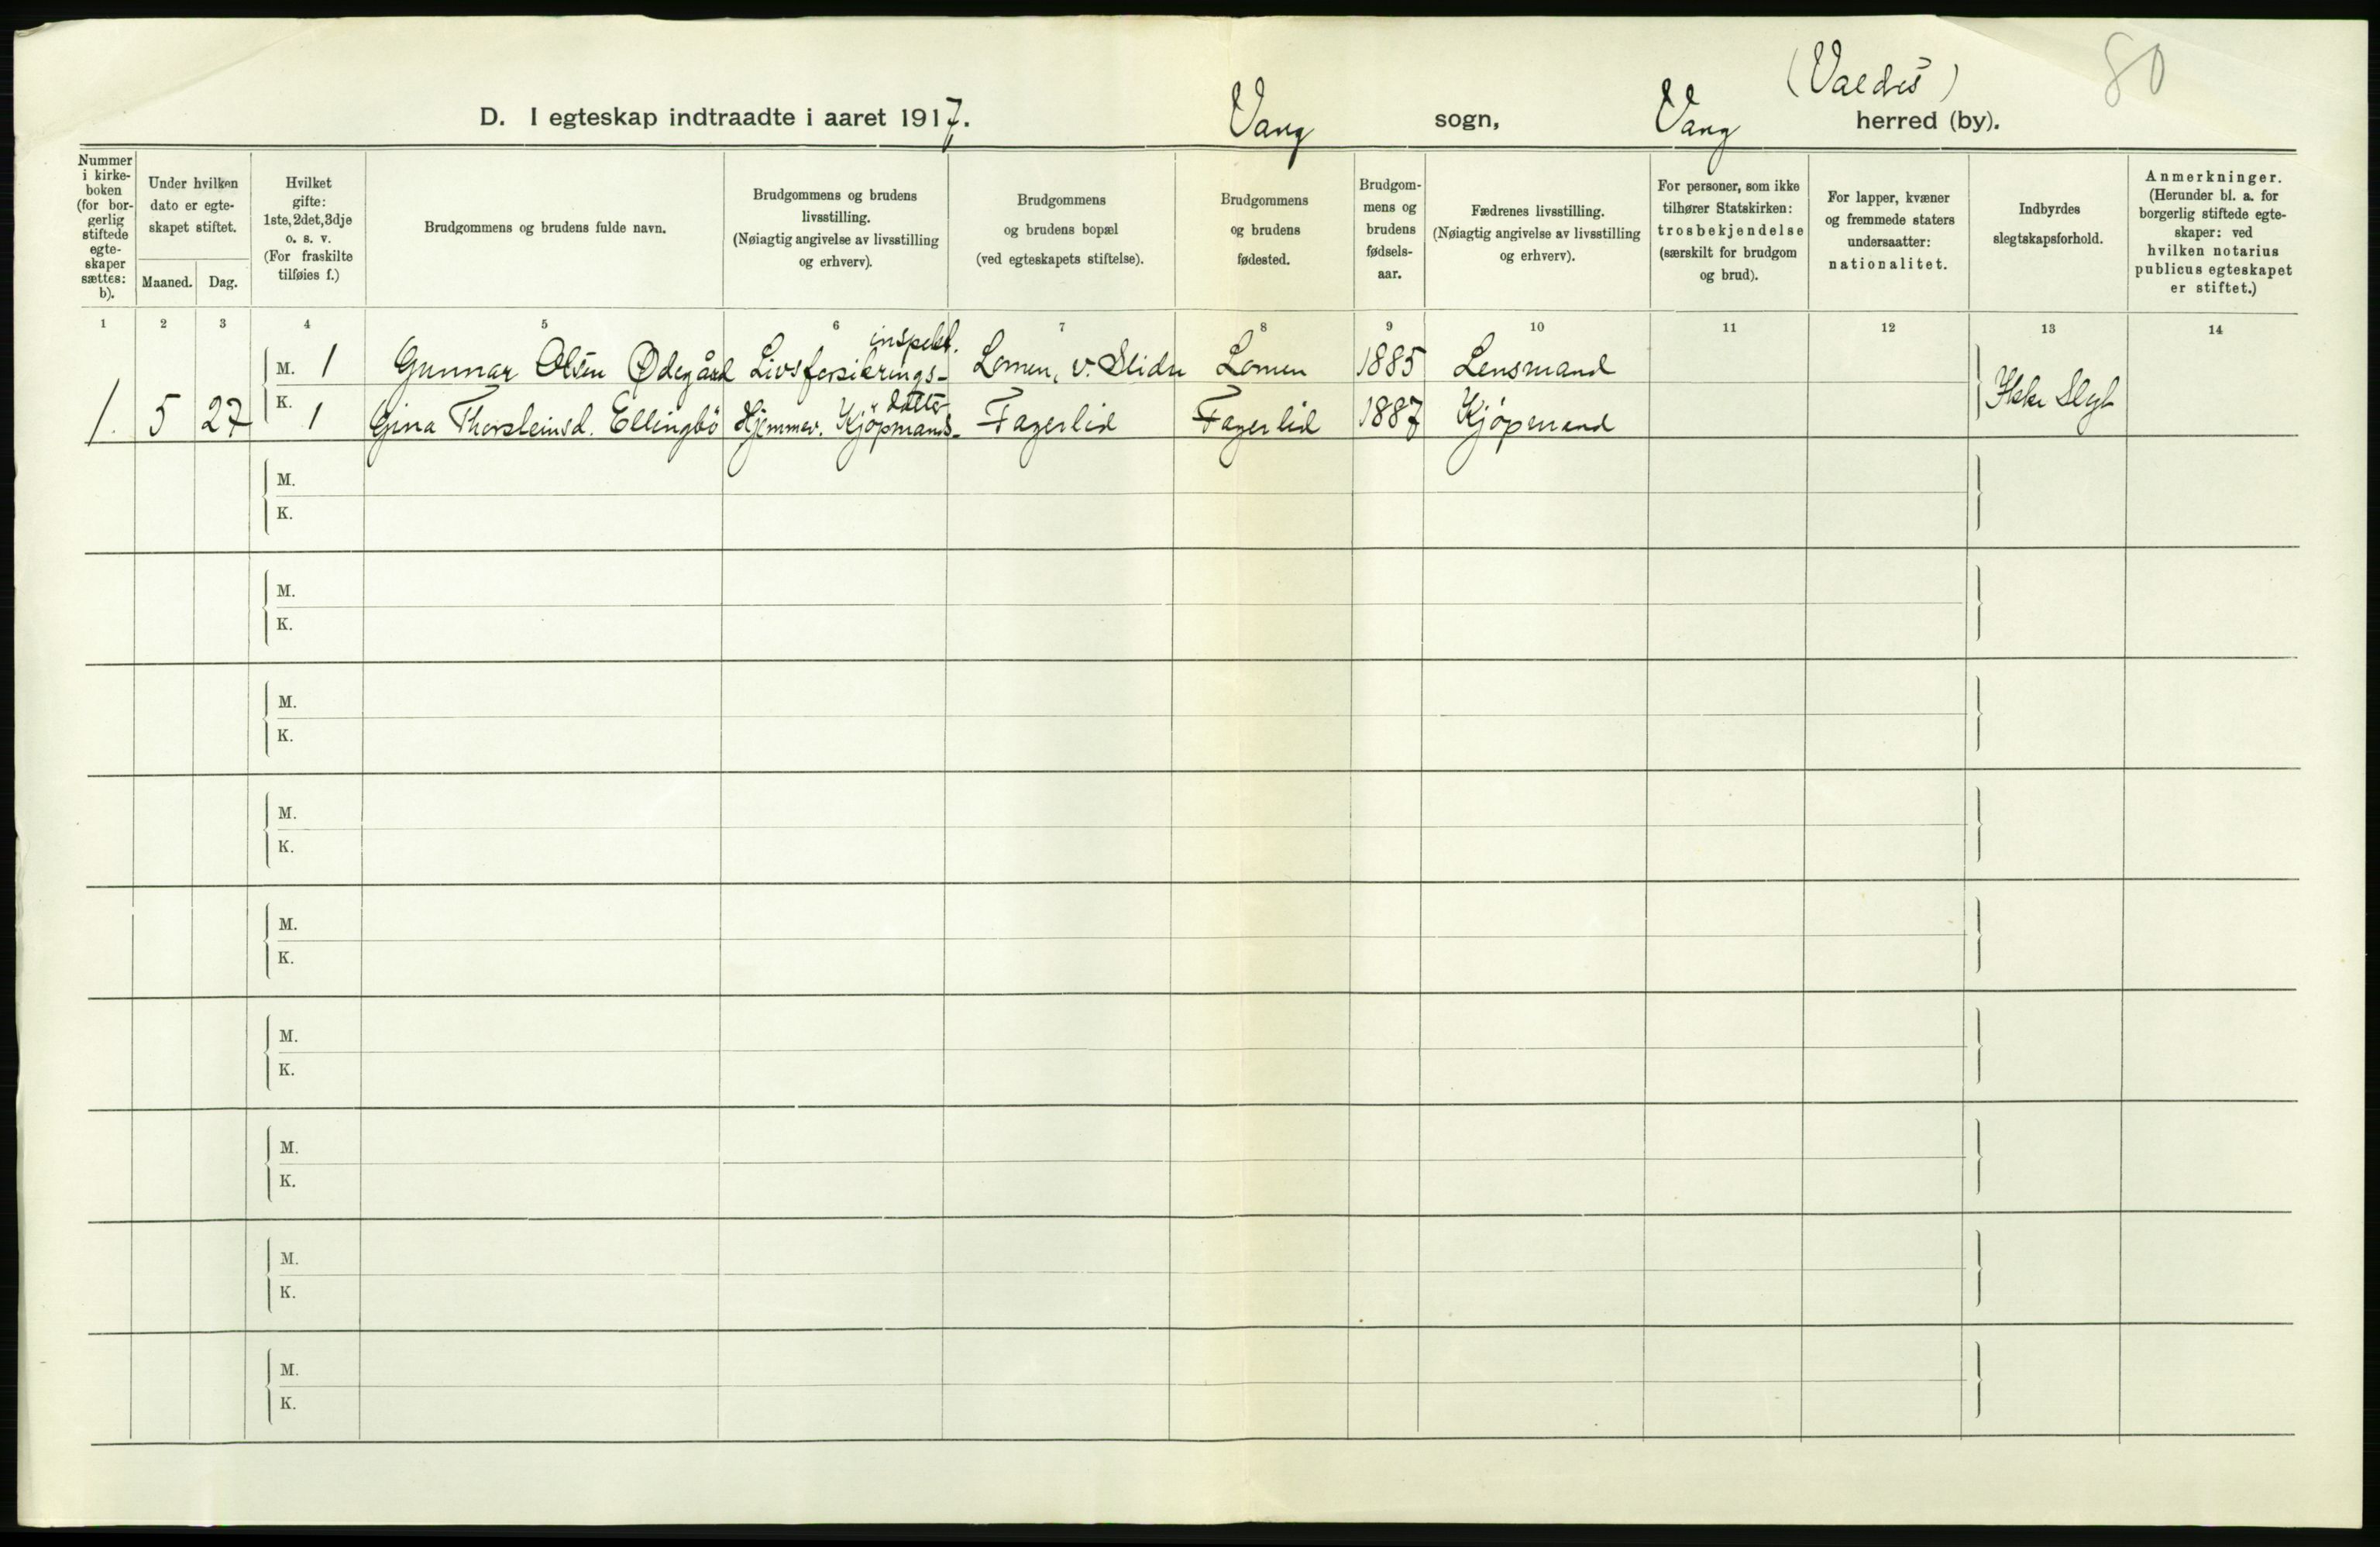 80
(Valdres)
D. I egteskap indtraadte i aaret 1917. Vang sogn, Vang herred (by).
Nummer i kirke-boken (for bor-gerlig stiftede egte-skaper sættes: b).
Under hvilken dato er egte-skapet stiftet.
Maaned. Dag.
Hvilket gifte: 1ste, 2det, 3dje o. s. v. (For fraskilte tilføies f.)
Brudgommens og brudens fulde navn.
Brudgommens og brudens livsstilling. (Nøiagtig angivelse av livsstilling og erhverv).
Brudgommens og brudens bopæl (ved egteskapets stiftelse).
Brudgommens og brudens fødested.
Brudgom-mens og brudens fødsels-aar.
Fædrenes livsstilling. (Nøiagtig angivelse av livsstilling og erhverv).
For personer, som ikke tilhører Statskirken: trosbekjendelse (særskilt for brudgom og brud).
For lapper, kvæner og fremmede staters undersaatter: nationalitet.
Indbyrdes slegtskapsforhold.
Anmerkninger. (Herunder bl. a. for borgerlig stiftede egte-skaper: ved hvilken notarius publicus egteskapet er stiftet.)
1 2 3 4 5 6 7 8 9 10 11 12 13 14
inspekt.
M. 1 Gunnar Olsen Ødegård Livsforsikrings- Lomen, v. Slidre Lomen 1885 Lensmand
Ikke Slegt
datter
1. 5 27 K. 1 Gina Thorsteinsd. Ellingbö Hjemmev. Kjøpmands- Fagerlid Fagerlid 1887 Kjøpmand
M.
K.
M.
K.
M.
K.
M.
K.
M.
K.
M.
K.
M.
K.
M.
K.
M.
K.